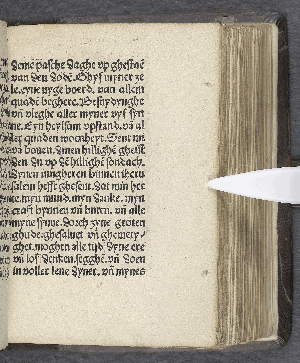 deme pasche daghe vp ghestaē
van den dodē. Ghyf myner ze
le. eyne nyge boerd. van allem
quadē beghere. Bestydynghe
vñ vleghe aller myner vyf syn
ne. Eyn heylsam vpstand. vā al
ler quaden wonheyt. Sent my
vā boven. dynen hillighē gheist
den du vp dē hillighē sondach.
dynen iungheren binnen iheru
salem hefst ghesent. dat min her
te. myn mund. myn danke. myn
craft bynnen vñ buten. vñ alle
myne synne. dorch dyne groten
ghude. ghesaluet vñ ghewery
ghet. moghen alle tyd dyne ere
vñ lof denken. segghē. vñ doen
in voller leue dyner. vñ mynes